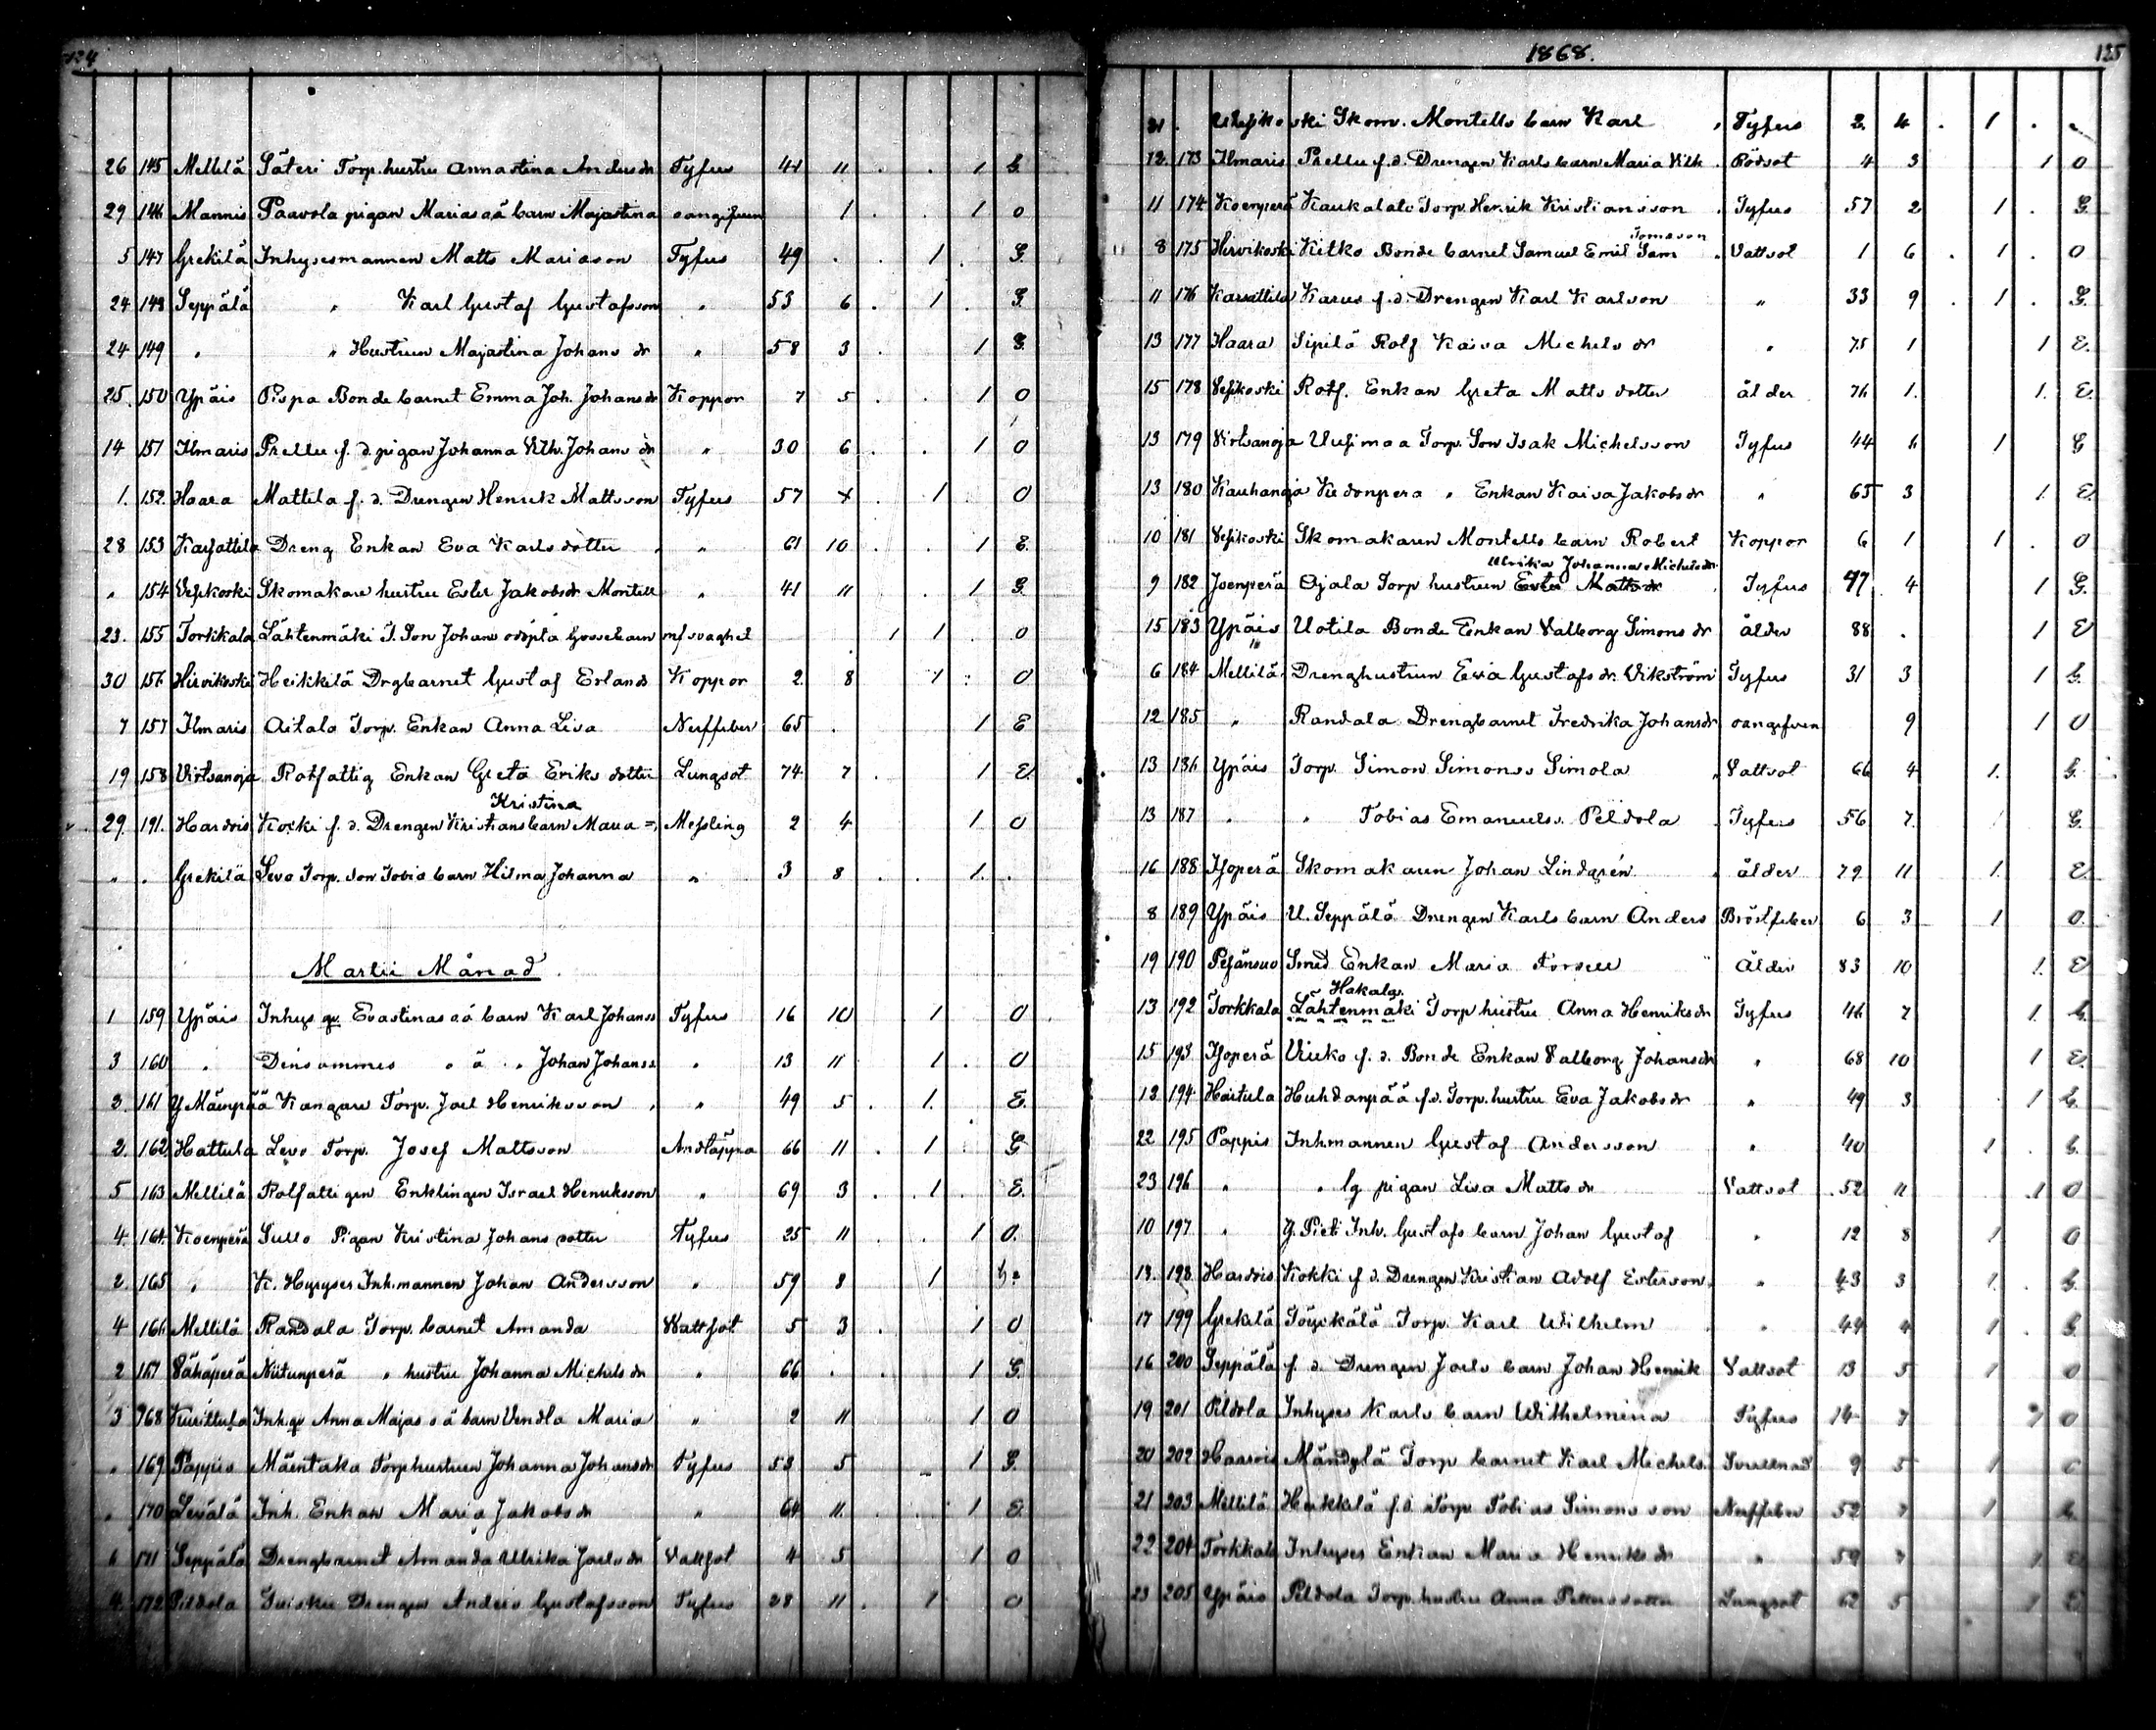 124
26 145 Mellilä Säteri Torp. hustru Annastina Anders dr Tyfus 41 11 . . 1 G.
29 146 Mannis Paavola pigan Marias oä barn Majastina oangifven 1 . . 1 0
5 147 Grekilä Inhysesmannen Matts Mariason Tyfus 49 . . 1 . G.
24 148 Seppälä " Karl Gustaf Gustafsson " 53 6 . 1 . G.
24 149 " " Hustrun Majastina Johans dr " 58 3 . 1 G.
25 150 Ypäis Pispa Bonde barnet Emma Joh. Johans dr Koppor 7 5 . . 1 0
14 151 Ilmaris Prellu f. d. pigan Johanna Vilh. Johans dr " 30 6 . . 1 0
1. 152. Haara Mattila f. d. Drengen Henrik Mattsson Tyfus 57 x . 1 0
28 153 Karsattila Dreng Enkan Eva Karls dotter " 61 10 . . 1 E.
" 154 Vesikoski Skomakare hustru Ester Jakobsdr Montell " 41 11 . 1 G.
23. 155 Torkkala Lähtenmäki T. Son Johans odöpta Gossebarn mfsvaghet 1 1 . 0
30 156 Hirvikoski Heikkilä Drgbarnet Gustaf Erlands Koppor 2. 8 1 . 0
7 157 Ilmaris Aitalo Torp. Enkan Anna Lisa Nerffeber 65 . 1 E
19 158 Virtsanoja Rotfattig Enkan Greta Eriks dotter Lungsot 74 7 . 1 E.
Kristina
29. 191. Hardois Kokki f. d. Drengen Kristians barn Maria = Messling 2 4 1 0
" " Grekilä Levo Torp. Son Tobias barn Hilma Johanna " 3 8 . . 1. .
Martii Månad.
1 159 Ypäis Inhys qv. Evastinas oä barn Karl Johanss Tyfus 16 10 . 1 0
3 160 " Densammes o ä " Johan Johanss. " 13 11 1 . 0
3. 161 Y Mäenpää Kangare Torp. Joel Henriksson " 49 5 . 1. E.
2. 162 Hattula Levo Torp. Josef Mattsson Andtäppa 66 11 . 1 G
5 163 Mellilä Rotfattigen Enklingen Israel Henriksson " 69 3 . . 1 . E.
4. 164. Koenperä Sullo Pigan Kristina Johans dotter Tyfus 25 11 . . 1 0.
2. 165 " K. Hyryses Inh.mannen Johan Andersson " 59 8 1
4 166 Mellilä Randala Torp. barnet Amanda Wattsot 5 3 . 1 0
2 167 Vähäperä Niitunperä " hustru Johanna Michels dr " 66 . . 1 G.
3 168 Kurittula Inh.qv Anna Majas o ä barn Vendla Maria " 2 11 1 0
" 169 Pappis Mäentaka Torphustrun Johanna Johansdr Tyfus 53 5 1 G.
" 170 Levälä Inh. Enkan Maria Jakobs dr " 64 11. . 1 E.
6 171 Seppälä Drengbarnet Amanda Ulrika Joels dr Vattsot 4 5 1 0
4. 172 Pildola Drengen Anders Gustafsson Tyfus 28 11 . 1 0
1868.
125
Vesikoski Skom. Montells barn Karl Tyfus 2. 4 . 1 .
12. 173 Ilmaris Prellu f. d. Drengen Karls barn Maria Vilh. Rödsot 4 3 1 0
11 174 Koenperä Kaukalalo Torp. Henrik Kristiansson Tyfus 57 2 1 . G.
Tomsson
8 175 Hirvikoski Kitko Bonde barnet Samuel Emil Sam Vattsot 1 6 . 1 . 0
11 176 Karsattila Karus f. d. Drengen Karl Karlson " 33 9 . 1 . G.
13 177 Haara Sipilä Rotf Kaisa Michels dr " 75 1 1 E.
15 178 Vesikoski Rotf. Enkan Greta Matts dotter ålder 76 1. 1. E.
13 179 Virtsanoja Uusimaa Torp. Son Isak Michelsson Tyfus 44 6 1 G
13 180 Kauhanoja Kedonpera " Enkan Kaisa Jakobs dr " 65 3 1. E.
10 181 Vesikoski Skomakaren Montells barn Robert Koppor 6 1 1 . 0
Ulrika Johanna Michelsdr
9 182 Joenperä Ojala Torp hustrun Ester Mattsdr Tyfus 47 4 1 G.
15 183 Ypäis Uotila Bonde Enkan Valborg Simons dr ålder 88 . 1 E
6 184 Mellilä Drenghustrun Eva Gustafs dr. Vikström Tyfus 31 3 1 G.
12 185 " Randala Drengbarnet Fredrika Johansdr oangifven 9 1 0
13 186 Ypäis Torp. Simon Simonss Simola Vattsot 66 4 1. G.
13 187 " " Tobias Emanuelss. Peldola Tyfus 56 7. G.
16 188 Isoperä Skomakaren Johan Lindgrén ålder 79 11 1. E.
8 189 Ypäis U. Seppälä Drengen Karls barn Anders Bröstfeber 6 3 1 0.
19 190 Pesänsuo Smed Enkan Maria Forsell Ålder 83 10 1. E
Hakala
13 192 Torkkala Lähtenmäki Torp hustru Anna Henriksdr Tyfus 46 7 1. G.
15 193. Isoperä Uieko f. d. Bonde Enkan Valborg Johansdr " 68 10 1 E.
13 194 Haitula Huhdanpää f.d. Torp. hustru Eva Jakobs dr " 49 3 1 G.
22 195 Pappis Inh.mannen Gustaf Andersson " 40 1 . G.
23 196 " " lg pigan Lisa Matts dr Vattsot 52 11 1 0
10 197 " Y. Pieti Inh. Gustafs barn Johan Gustaf " 12 8 1 0
13. 198. Hardois Kokki f. d. Drengen Kristian Adolf Esterson. " 43 3 1. . G.
17 199 Grekilä Töyrkälä Torp. Karl Wilhelm " 44 4 1 . G.
16 200 Seppälä f. d. Drengen Joels barn Johan Henrik Vattsot 13 5 1 0
19 201 Pildola Inhyses Karls barn Wilhelmina Tyfus 14 7 1 0
20 202 Haarois Mändylä Torp barnet Karl Michels. Svullnad 9 5 1
21 203 Mellilä Heikkilä f.d. Torp. Tobias Simonsson Nerffeber 52 7 1 G.
22 204 Torkkala Inhyses Enkan Maria Henriks dr " 59 7 1
23 205 Ypäis Peldola Torp. hustru Anna Petters dotter Lungsot 62 5 1 E.